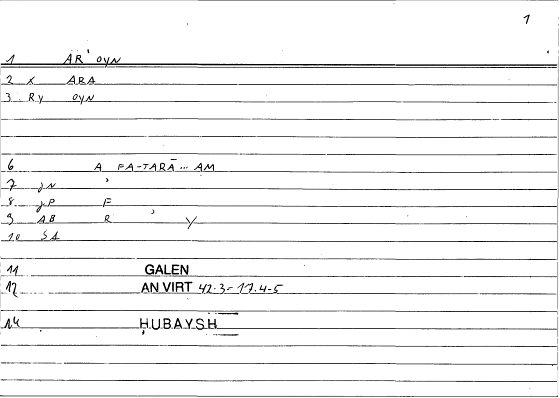 1
1 AR' OYN
2 X ARA
3. RY OYN
6 A FA-TARĀ... AM
7 jN '
8 jP F
9 AB R ' Y
10 SA
11 GALEN
12 AN VIRT 42.3-17.4-5
14 ḤUBAYSH